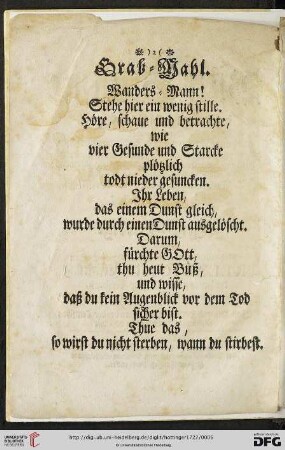 )2(
Grab-Mahl.
Wanders-Mann!
Stehe hier ein wenig stille.
Höre, schaue und betrachte,
wie
vier Gesunde und Starcke
plötzlich
todt nieder gesuncken.
Ihr Leben,
das einem Dunst gleich,
wurde durch einen Dunst ausgelöscht.
Darum,
fürchte GOtt,
thu heut Buß,
und wisse,
daß du kein Augenblick vor dem Tod
sicher bist.
Thue das,
so wirst du nicht sterben, wann du stirbest.
UNIVERSITÄTS-
BIBLIOTHEK
HEIDELBERG
http://digi.ub.uni-heidelberg.de/diglit/hottinger1727/0006
© Universitätsbibliothek Heidelberg
gefördert durch die